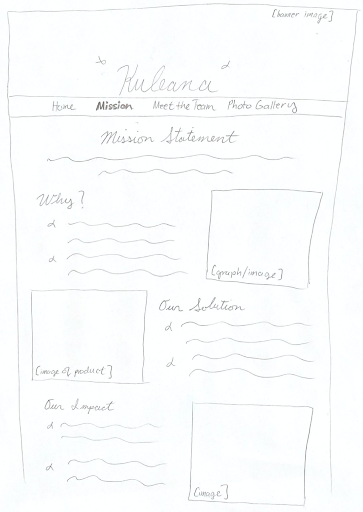 [banner image]
Kuleana
Home Mission Meet the Team Photo Gallery
Mission Statement
Why?
[graph/image]
Our Solution
[image of product]
Our Impact
[image]